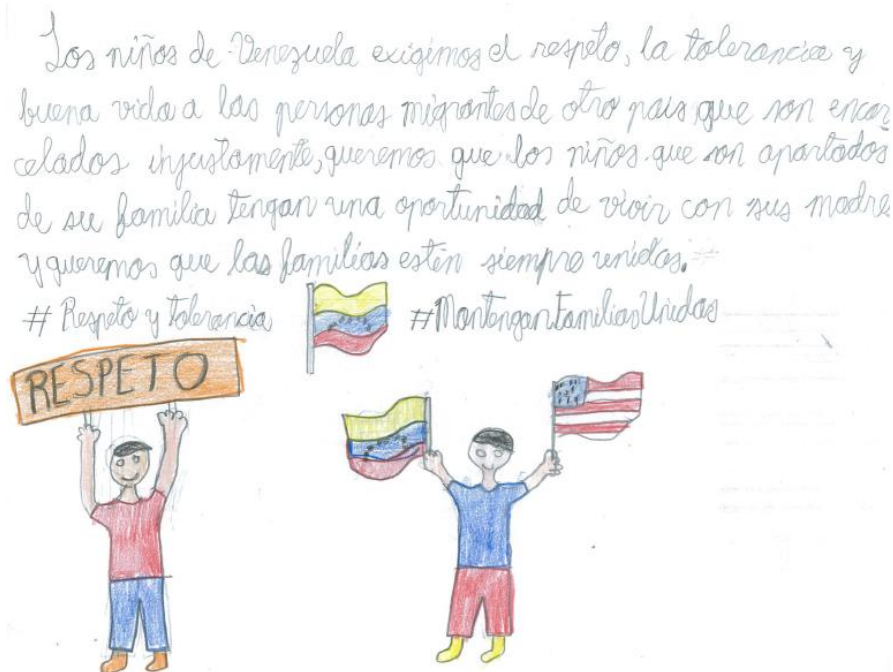 Los niños de Venezuela exigimos el respeto, la tolerancia y
buena vida a las personas migrantes de otro pais que son encar
celados injustamente, queremos que los niños que son apartados
de su familia tengan una oportunidad de vivir con sus madre
y queremos que las familias estén siempre unidas.
# Respeto y tolerancia #MantenganFamiliasUnidas
RESPETO